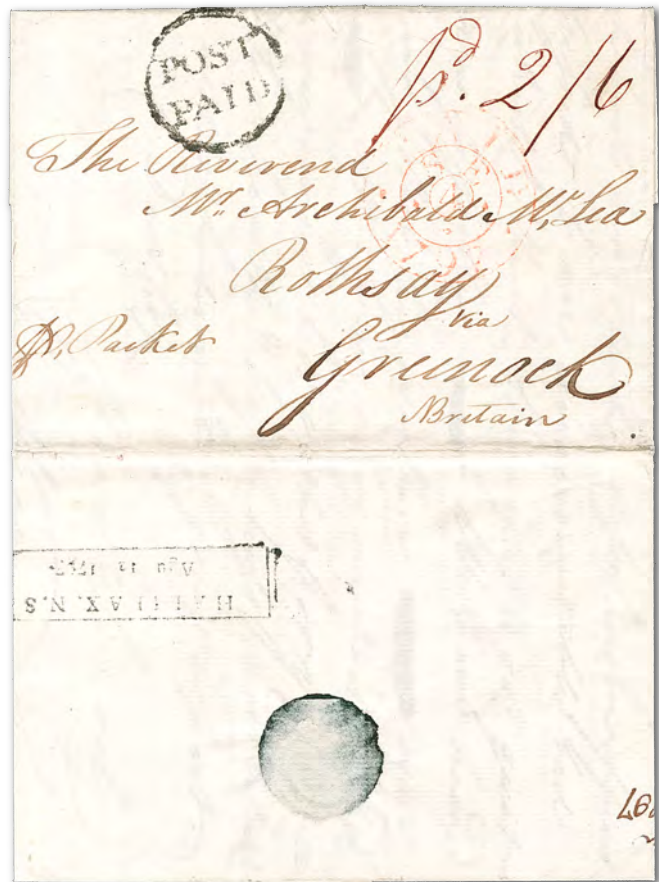 POST
PAID
pd. 2/6
The Reverend
Mr. Archibald Mc. Lea
Rothsay
via
Pr. Packet
Greenock
Britain
HALIFAX. N.S